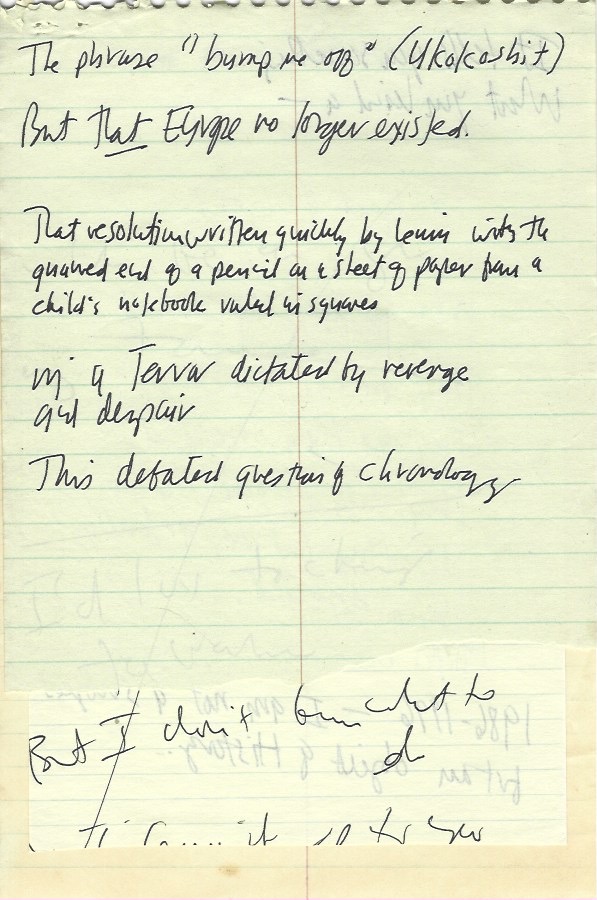 The phrase "bump me off" (Ukokoshit)
But that Europe no longer existed.
That resolution written quickly by Lenin with the
gnawed end of a pencil on a sheet of paper from a
child's notebook ruled in squares
in a Terror dictated by revenge
and despair
This debated question of chronology
But I don't know what to
do